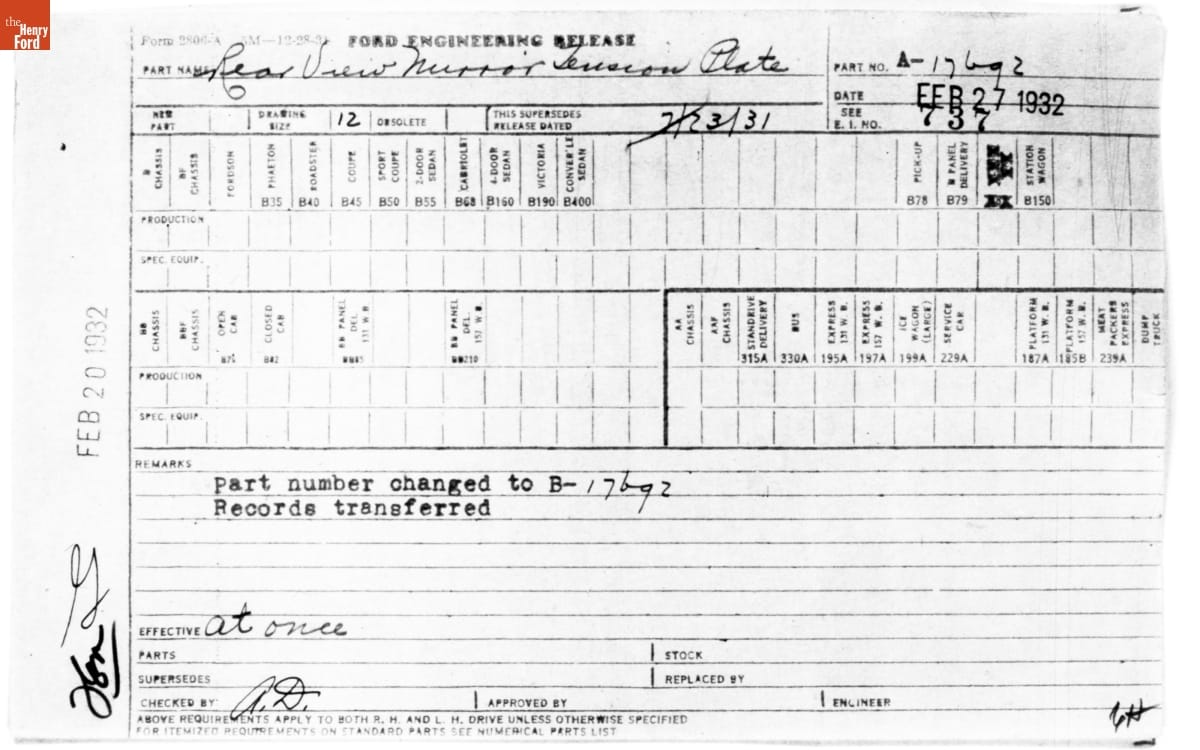 the Henry Ford
Form 2806-A 5M—12-28-31 FORD ENGINEERING RELEASE
PART NAME Rear View Mirror Tension Plate
PART NO. A-17692
DATE FEB 27 1932
SEE E. I. NO. 737
NEW PART DRAWING SIZE 12 OBSOLETE THIS SUPERSEDES RELEASE DATED 7/23/31
B CHASSIS BF CHASSIS FORDSON PHAETON ROADSTER COUPE SPORT COUPE 2-DOOR SEDAN CABRIOLET 4-DOOR SEDAN VICTORIA CONVER'LE SEDAN PICK-UP B PANEL DELIVERY STATION WAGON
B35 B40 B45 B50 B55 B68 B160 B190 B400 B78 B79 B150
PRODUCTION
SPEC. EQUIP.
BB CHASSIS BBF CHASSIS OPEN CAB CLOSED CAB BB PANEL DEL. 131 W.B. BB PANEL DEL. 157 W.B. AA CHASSIS AAF CHASSIS STANDRIVE DELIVERY BUS EXPRESS 131 W. B. EXPRESS 157 W. B. ICE WAGON (LARGE) SERVICE CAR PLATFORM 131 W. B. PLATFORM 157 W. B. MEAT PACKERS EXPRESS DUMP TRUCK
B82 315A 330A 195A 197A 199A 229A 187A 185B 239A
PRODUCTION
SPEC. EQUIP.
REMARKS
Part number changed to B-17692
Records transferred
EFFECTIVE at once
PARTS STOCK
SUPERSEDES REPLACED BY
CHECKED BY A.D. APPROVED BY ENGINEER
ABOVE REQUIREMENTS APPLY TO BOTH R. H. AND L. H. DRIVE UNLESS OTHERWISE SPECIFIED
FOR ITEMIZED REQUIREMENTS ON STANDARD PARTS SEE NUMERICAL PARTS LIST
FEB 20 1932